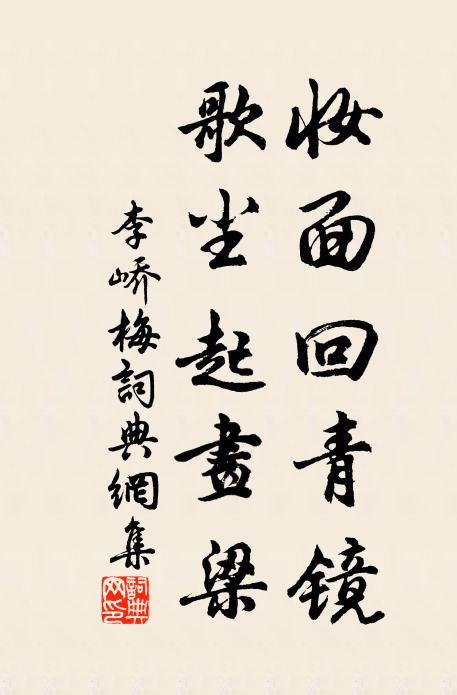 妆面回青镜
歌尘起畫梁
李峤梅詞典網集
詞典网印